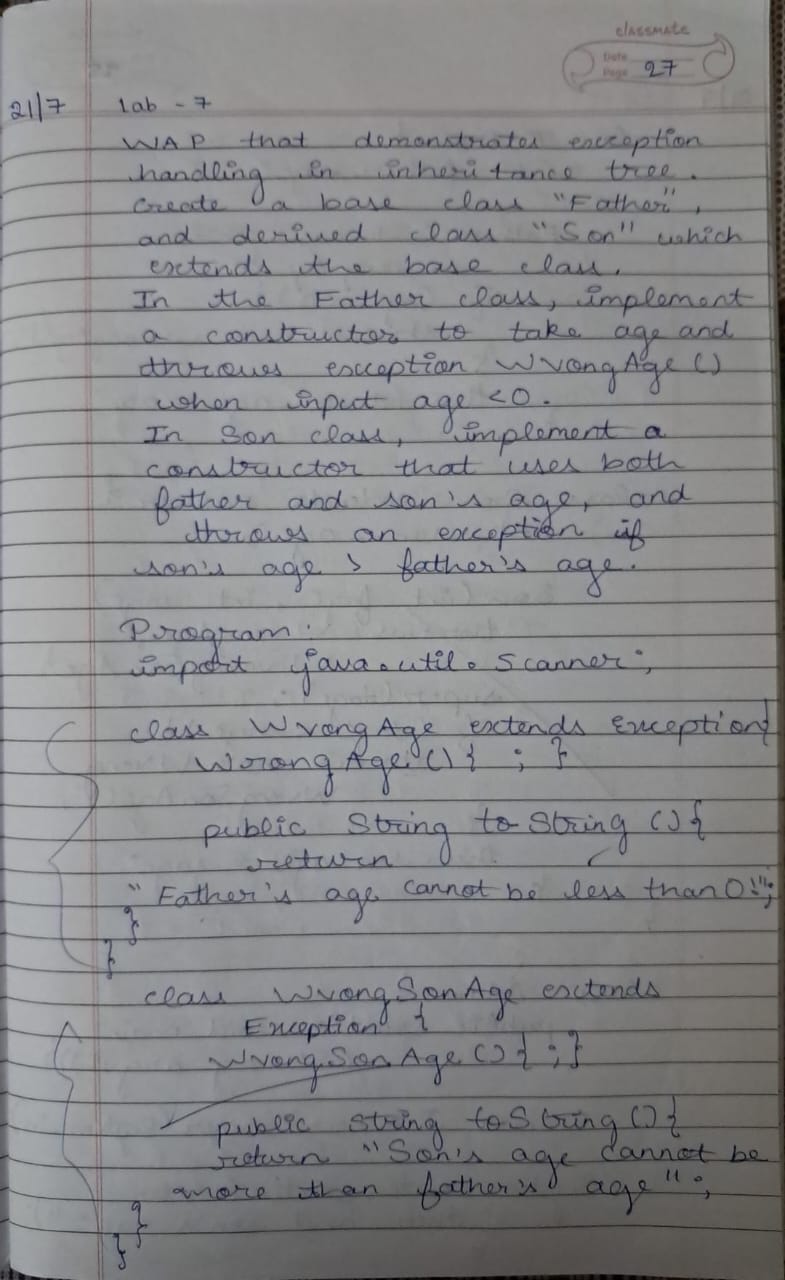 classmate
Date
Page 27
21/7 Lab - 7
WAP that demonstrates exception
handling in inheritance tree.
Create a base class "Father",
and derived class "Son" which
extends the base class.
In the Father class, implement
a constructor to take age and
throws exception WrongAge()
when input age <0.
In Son class, implement a
constructor that uses both
father and son's age, and
throws an exception if
son's age > father's age.
Program:
import java.util.Scanner;
class WrongAge extends Exception{
WrongAge(){ ; }
public String toString(){
return
"Father's age cannot be less than 0!";
}
}
class WrongSonAge extends
Exception {
WrongSonAge(){ ; }
public String toString(){
return "Son's age cannot be
more than father's age";
}
}